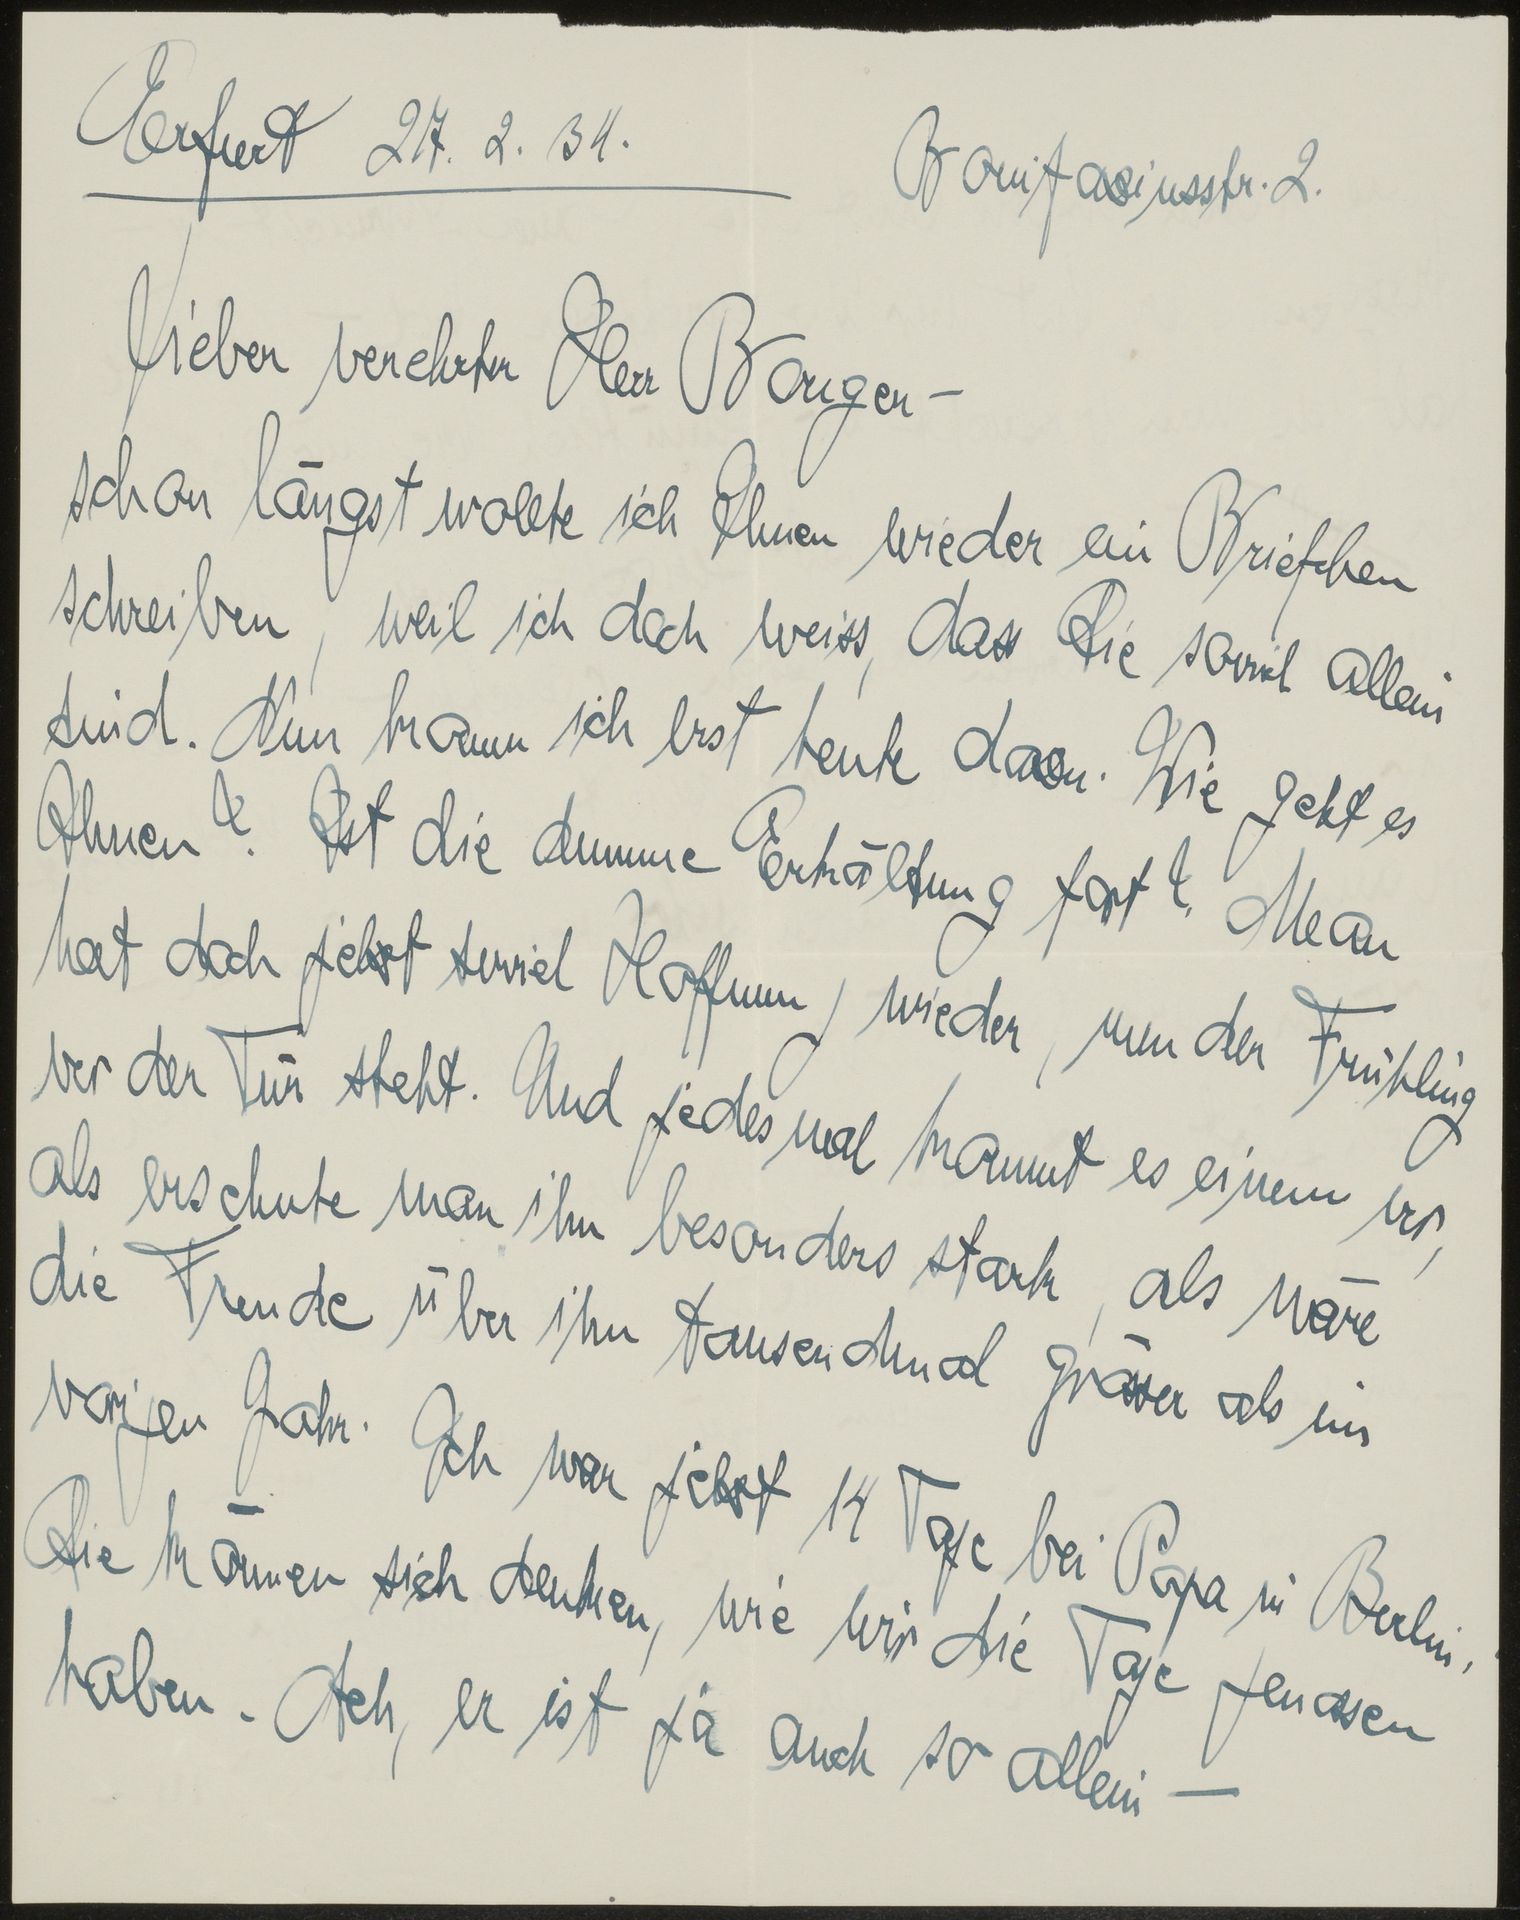 Erfurt 27. 2. 34.
Bonifaciusstr. 2.
Lieber verehrter Herr Bonger –
schon längst wollte ich Ihnen wieder ein Briefchen
schreiben, weil ich doch weiss, dass Sie soviel allein
sind. Nun komm ich erst heute dazu. Wie geht es
Ihnen? Ist die dumme Erkältung fort? Man
hat doch jetzt soviel Hoffnung wieder, nun der Frühling
vor der Tür steht. Und jedesmal kommt es einem vor,
als ersehnte man ihn besonders stark, als wäre
die Freude über ihn tausendmal grösser als im
vorigen Jahr. Ich war jetzt 14 Tage bei Papa in Berlin.
Sie können sich denken, wie wir die Tage genossen
haben. Ach, er ist ja auch so allein –